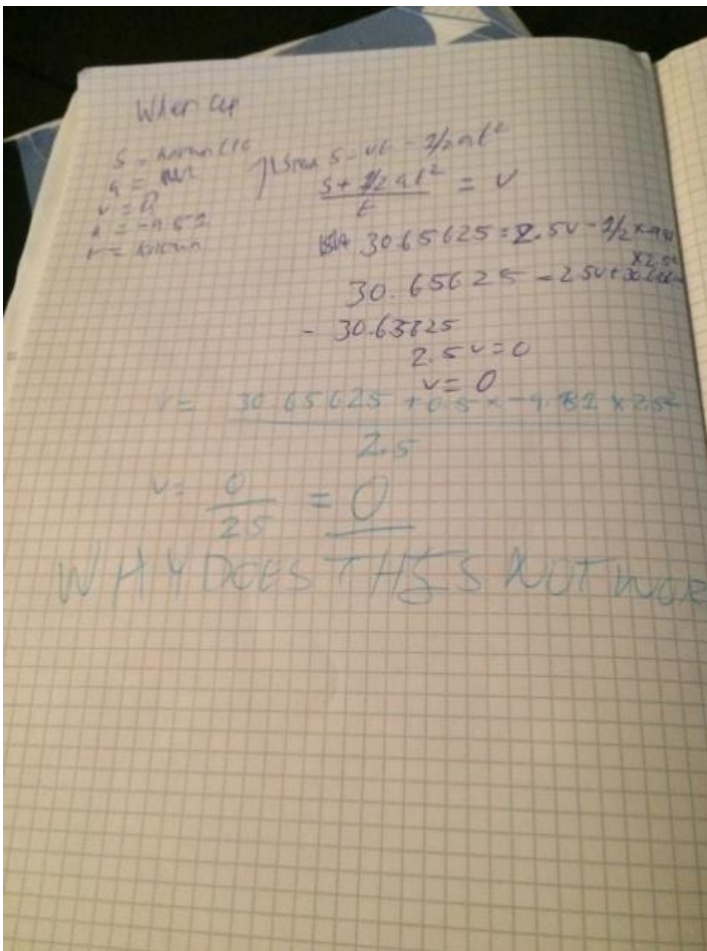 When up
s = known
u =
v = 0
a = -9.82
t = known
s = vt - 1/2 at²
s + 1/2 at² / t = v
30.65625 = 2.5v - 1/2 ×
30.65625 = 2.5v +
- 30.65625
2.5v = 0
v = 0
v = 30.65625 + 0.5 × -9.82 × 2.5² / 2.5
v = 0 / 25 = 0
WHY DOES THIS NOT WOR